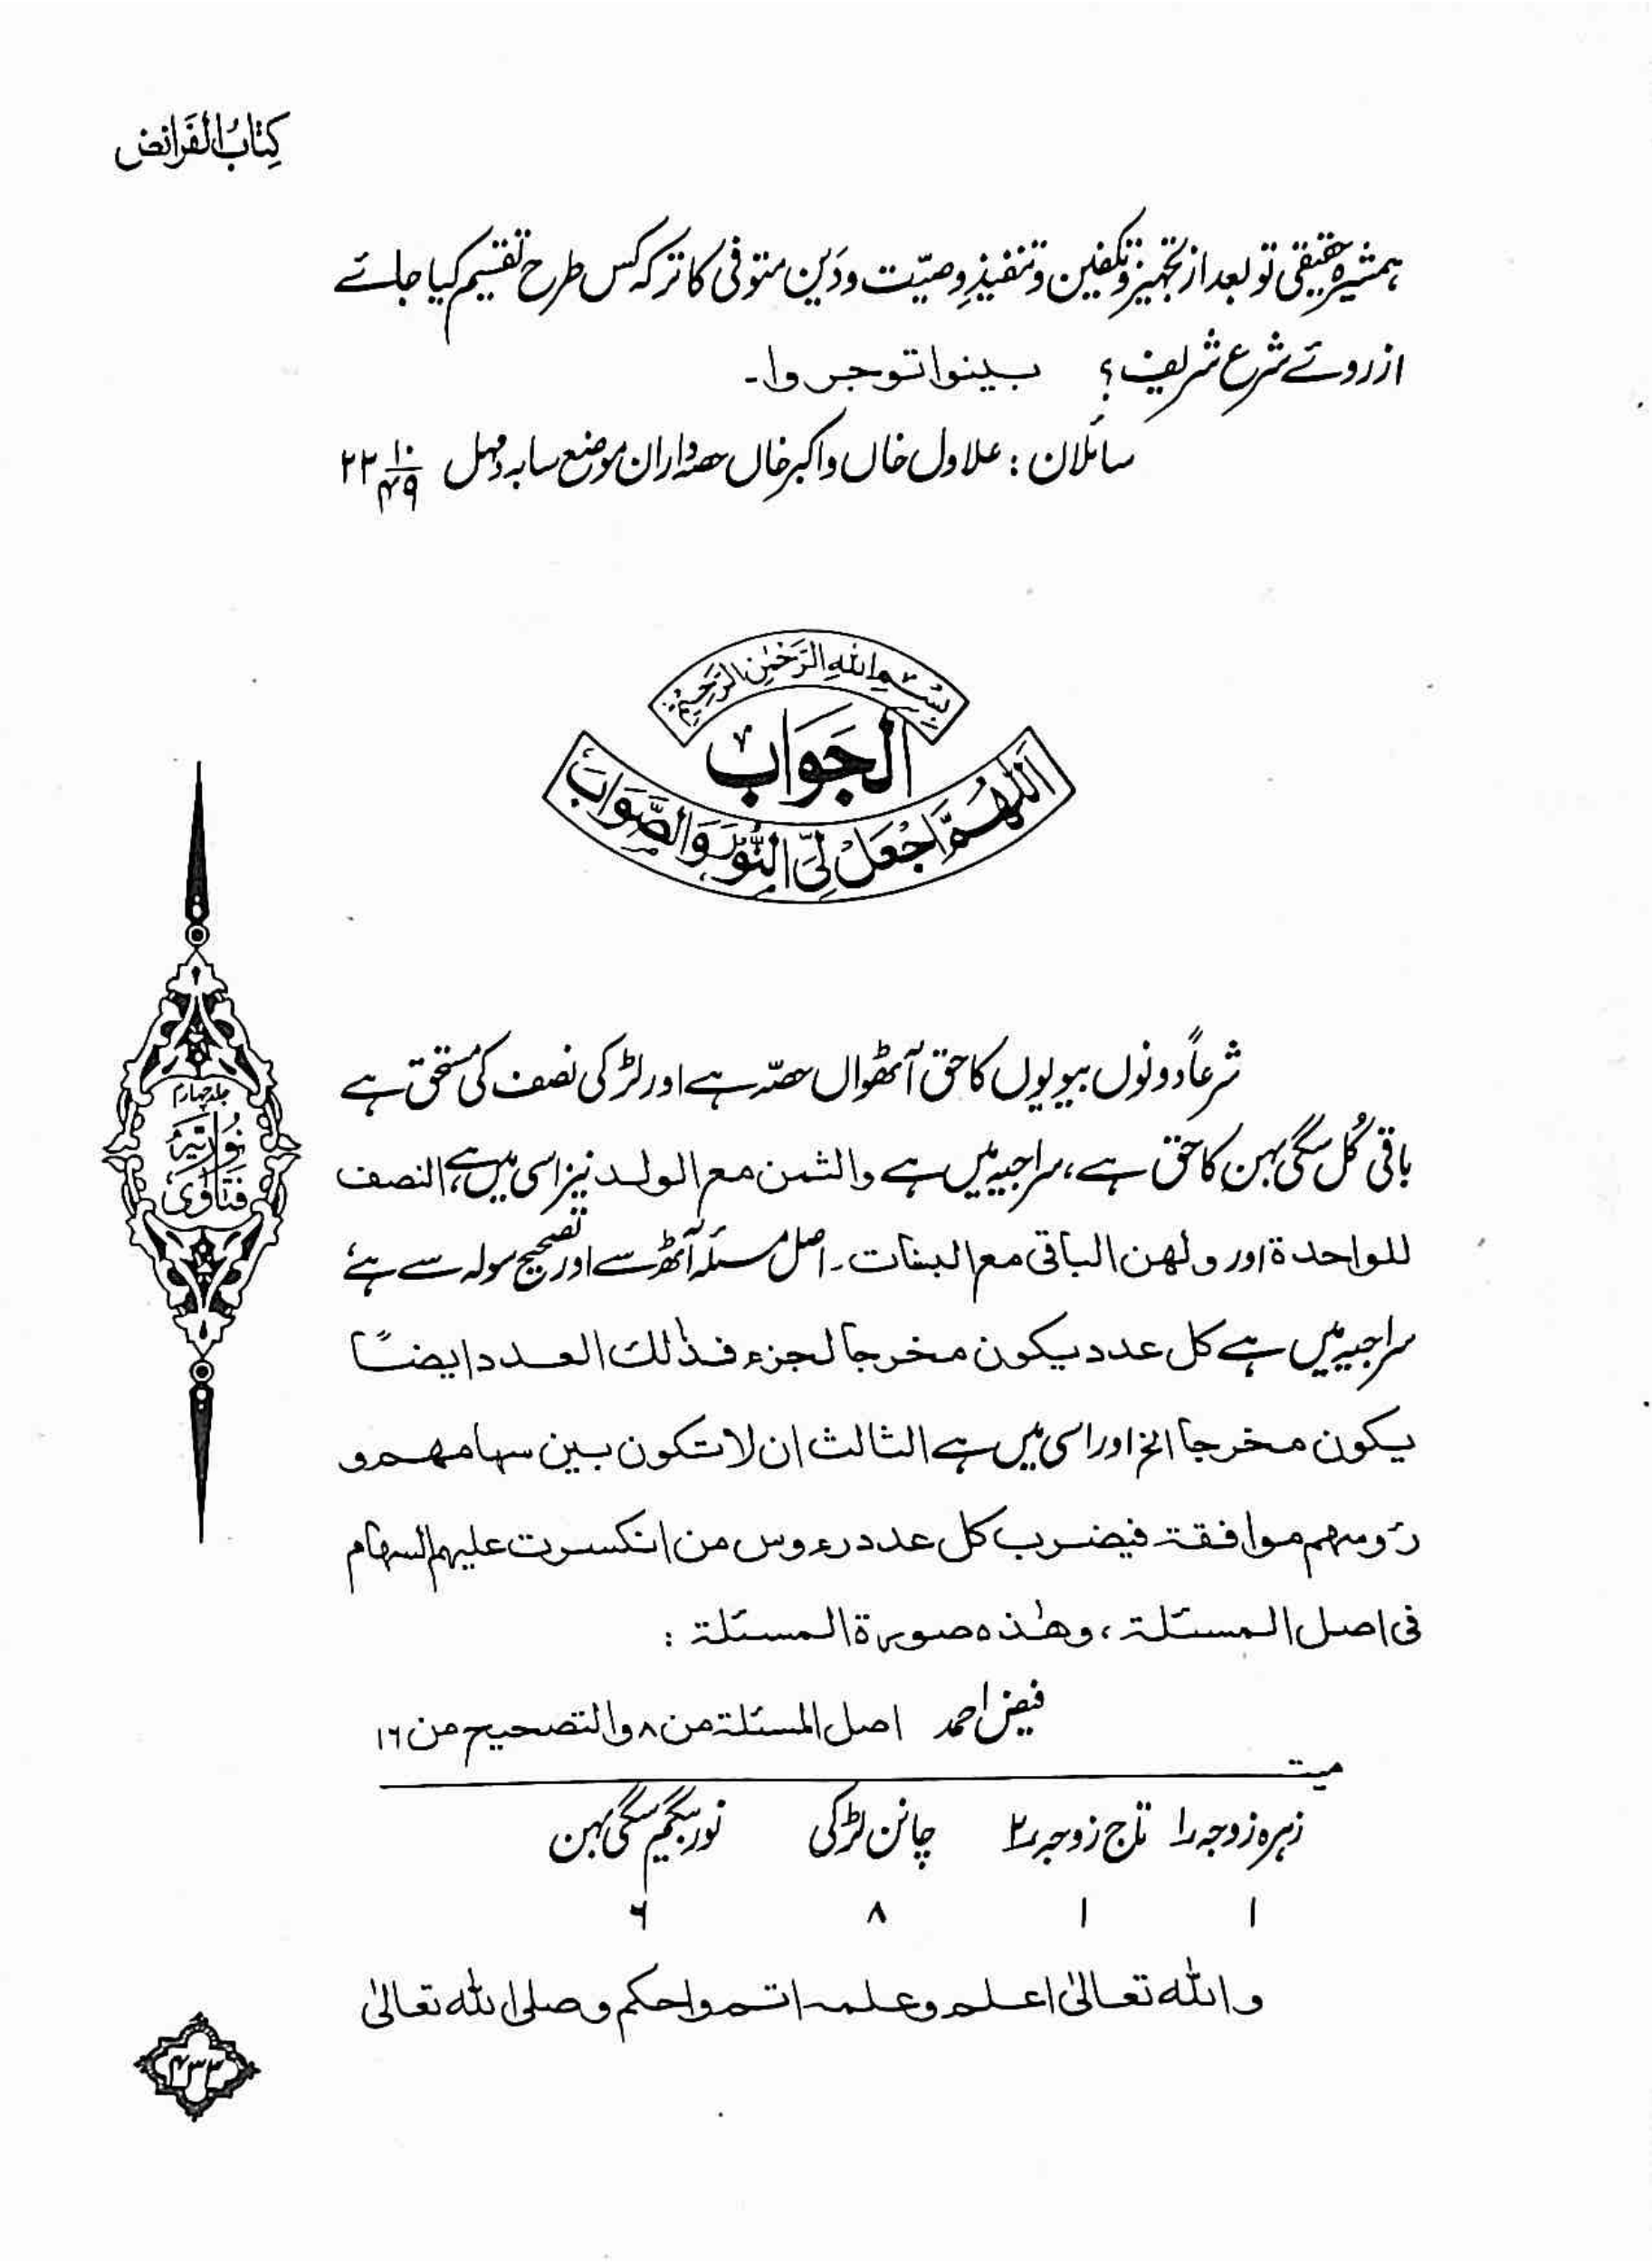 کِتَابُ الْفَرَائِض
ہمشیرہ حقیقی تو بعد از تجہیز و تکفین و تنفیذِ وصیّت و دَین متوفی کا ترکہ کس طرح تقسیم کیا جائے
ازروئے شرع شریف؟ بینوا توجروا۔
سائلان : علاول خاں و اکبر خاں حصہ داران موضع سابہ دہل ۲۲/۱۰/۴۹
بِسْمِ اللهِ الرَّحْمٰنِ الرَّحِيْمِ
الجَوَابُ
اَللّٰهُمَّ اجْعَلْ لِّیَ النُّوْرَ وَالصَّوَابَ
شرعاً دونوں بیویوں کا حق آٹھواں حصّہ ہے اور لڑکی نصف کی مستحق ہے
باقی کُل سگی بہن کا حق ہے، سراجیہ میں ہے والثمن مع الولد نیز اسی میں ہے، النصف
للواحدة اور ولهن الباقی مع البنات۔ اصل مسئلہ آٹھ سے اور تصحیح سولہ سے ہے،
سراجیہ میں ہے کل عدد یکون مخرجا لجزء فذٰلك العدد ایضًا
یکون مخرجا الخ اور اسی میں ہے الثالث ان لا تکون بین سہامهم و
رءوسهم موافقة فیضرب کل عدد رءوس من انکسرت علیہم السہام
فی اصل المسئلة، وهٰذه صورة المسئلة :
فیض احمد اصل المسئلة من ۸ والتصحیح من ۱۶
میت
زہرہ زوجہ ۱ تاج زوجہ ۲ چانن لڑکی نور بیگم سگی بہن
۱ ۱ ۸ ۶
والله تعالىٰ اعلم وعلمه اتم واحکم وصلی الله تعالىٰ
جلد چہارم
فتاوٰی نوریہ
۴۳۳